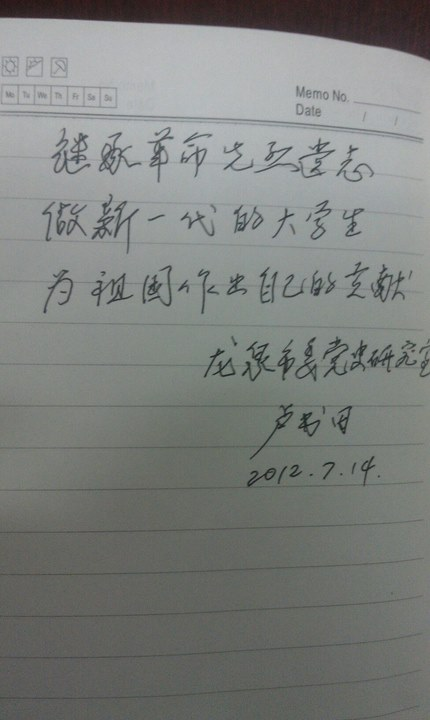 Mo Tu We Th Fr Sa Su
Memo No.
Date / /
继承革命先烈遗志
做新一代的大学生
为祖国作出自己的贡献
龙泉市委党史研究室
卢书田
2012.7.14.